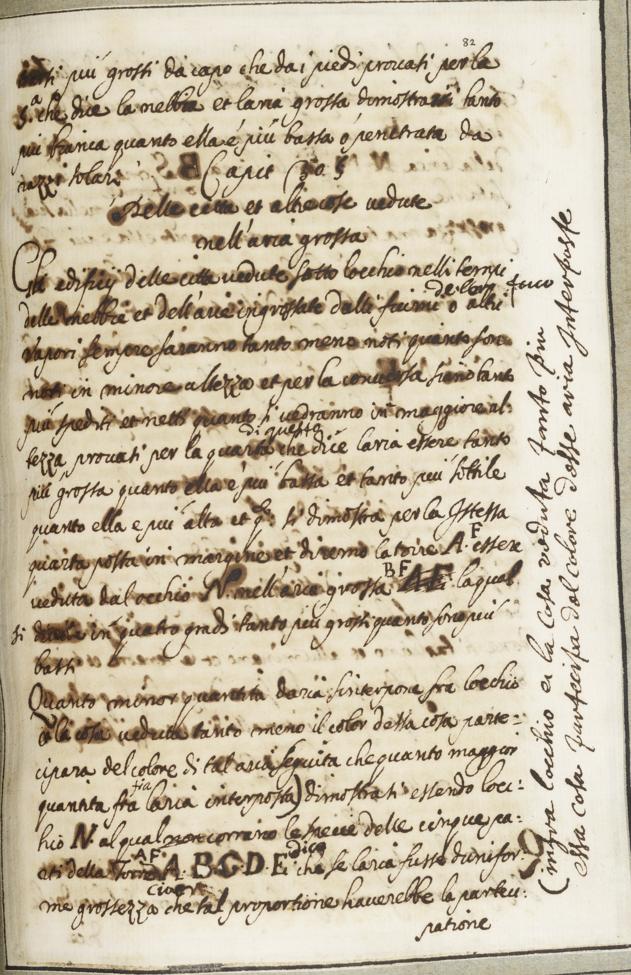 82
più grossi da capo che dai piedi provati per la
5.a che dice la nebbia et laria grossa dimostrarsi tanto
più bianca quanto ella é più bassa ó penetrata da
razzi solari
Capit 305
Delle citta et altre cose vedute
nell'aria grossa
Gli edifitij delle citta vedute sotto locchio nelli tempi
delle nebbie et dell'arie ingrossate dalli fuumi o altri
de lor fuoco
vapori sempre saranno tanto meno noti quanto son
noti in minore altezza et per la conversa sieno tant
più spediti et netti quanto si vedranno in maggiore al:
tezza provati per la quarta che dice laria essere tanto
di questo
più grossa quanto ella e più bassa et tanto più sottile
quanto ella e più alta et q.o si dimostra per la Istessa
quarta posta in margine et diremo la torre A F essere
veduta dal occhio N. nell'aria grossa B F laqual
si divide in quatro gradi tanto più grossi quanto sono più
bassi
Quanto minor quantita daria sinterpone fra locchio
e la cosa veduta tanto meno il color dessa cosa parte=
cipara del colore di tal aria seguita che quanto maggior
quantita fia laria interposta) dimostrasi essendo loc:
hio N. al qual concorrano le spetie delle cinque pa:
rti della Torre A F. A B C D E dico che se laria fusse dunifor:
me grossezza che tal proportione haverebbe la parteci:
patione
(infra locchio ei la cosa veduta tanto più
essa cosa partecipa del colore desse aria Interposte